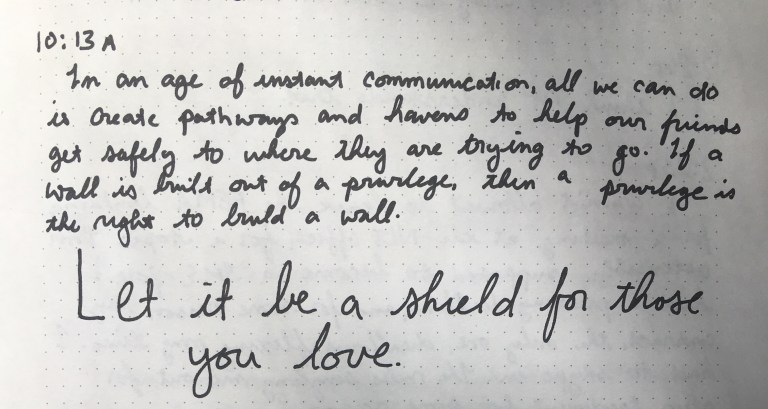 10:13 A
In an age of instant communication, all we can do
is create pathways and havens to help our friends
get safely to where they are trying to go. If a
wall is built out of a privilege, then a privilege is
the right to build a wall.
Let it be a shield for those
you love.